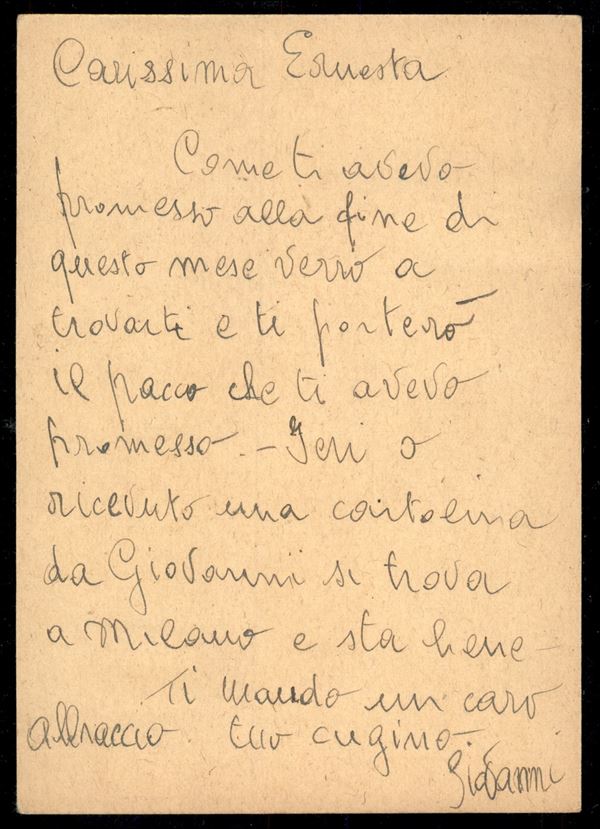 Carissima Ernesta
Come ti avevo
promesso alla fine di
questo mese verrò a
trovarti e ti porterò
il pacco che ti avevo
promesso. - Ieri o
ricevuto una cartolina
da Giovanni si trova
a Milano e sta bene -
Ti mando un caro
abbraccio tuo cugino
Giovanni